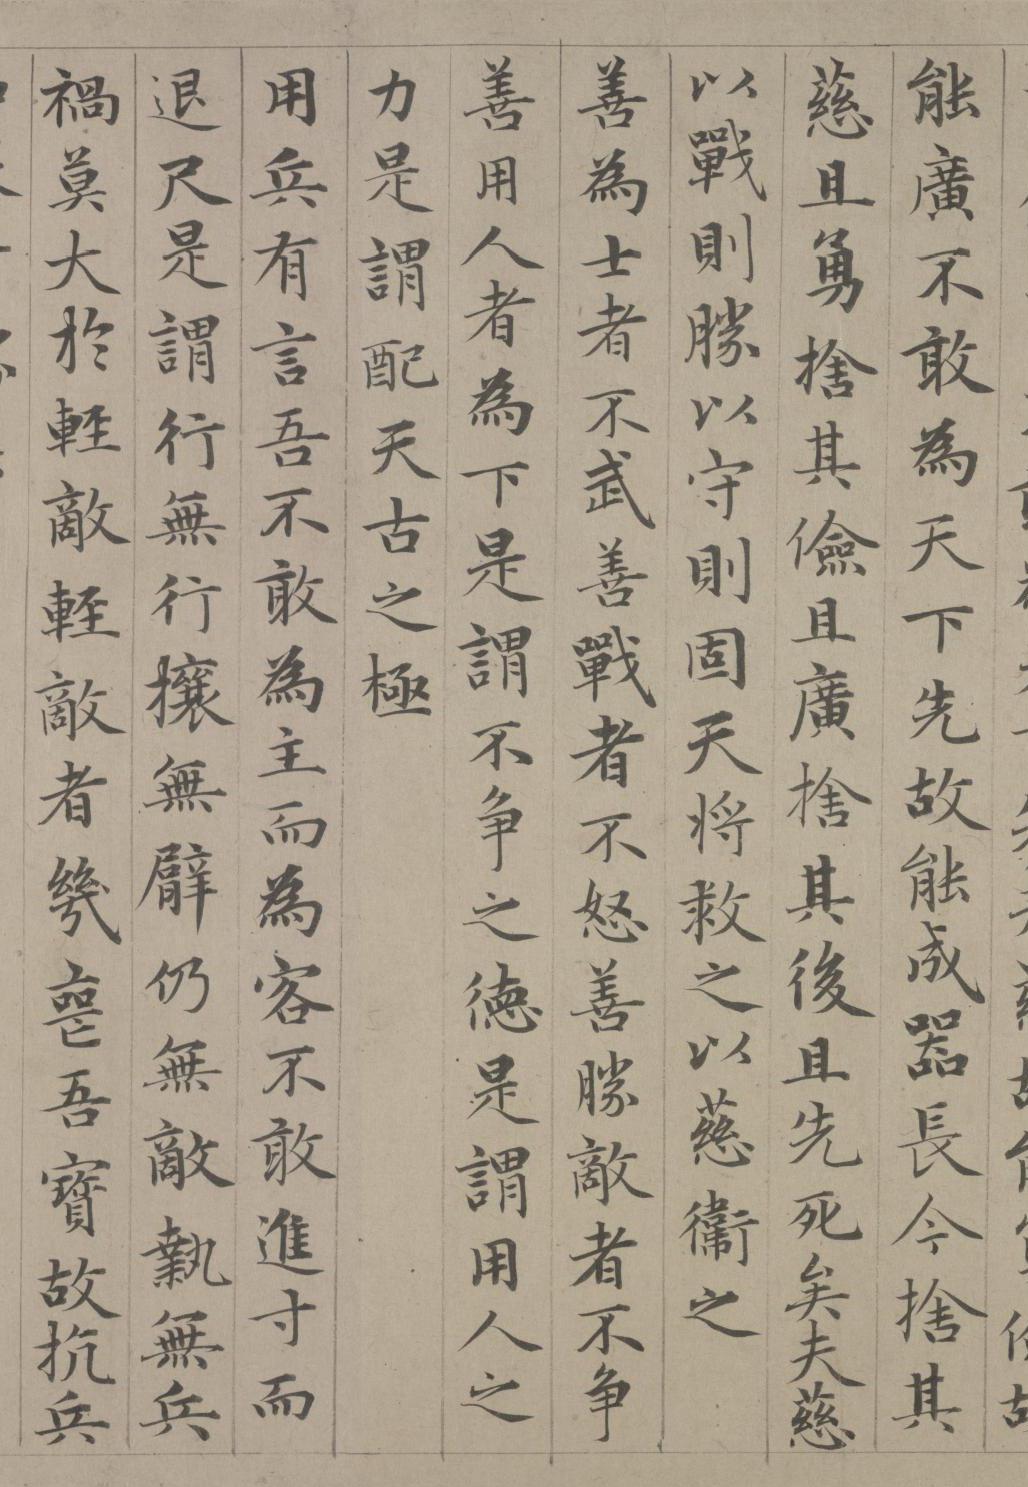 能廣不敢為天下先故能成器長今捨其
慈且勇捨其儉且廣捨其後且先死矣夫慈
以戰則勝以守則固天将救之以慈衛之
善為士者不武善戰者不怒善勝敵者不争
善用人者為下是謂不争之德是謂用人之
力是謂配天古之極
用兵有言吾不敢為主而為客不敢進寸而
退尺是謂行無行攘無臂仍無敵執無兵
禍莫大於輕敵輕敵者幾喪吾寳故抗兵